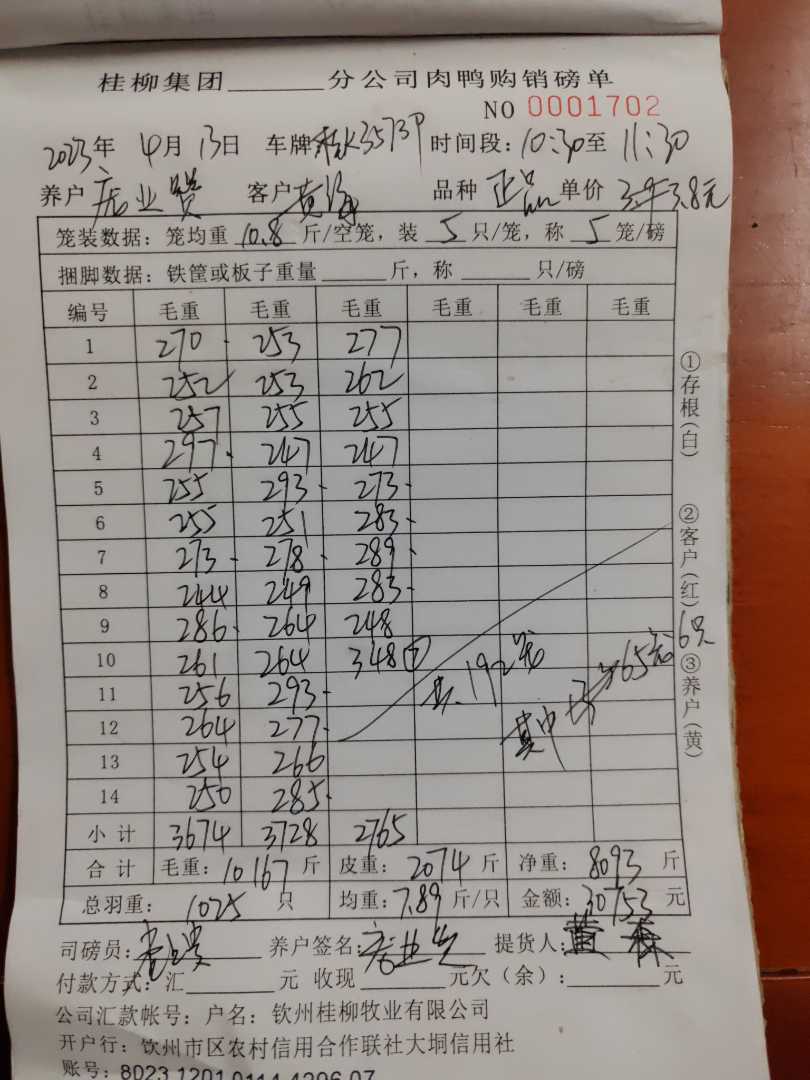 桂柳集团______分公司肉鸭购销磅单
NO 0001702
2023年 4月 13日 车牌 桂K3573P 时间段: 10:30至 11:30
养户 业 客户 黄 品种 正品 单价 3.8元
笼装数据: 笼均重 10.8 斤/空笼, 装 5 只/笼, 称 5 笼/磅
捆脚数据: 铁筐或板子重量______斤, 称______只/磅
编号 毛重 毛重 毛重 毛重 毛重 毛重
1 270 253 277
2 252 253 262
3 257 255 255
4 297 247 247
5 255 293 273
6 255 251 283
7 273 278 289
8 244 249 283
9 286 264 248
10 261 264 348⑦
11 256 293
12 264 277
13 254 266
14 250 285
共 192笼
其中 65 6只
小计 3674 3728 2765
合计 毛重: 10167 斤 皮重: 2074 斤 净重: 8093 斤
总羽重: 1025 只 均重: 7.89 斤/只 金额: 30753 元
司磅员: 养户签名: 业 提货人: 黄森
付款方式: 汇______元 收现______元欠(余): ______元
公司汇款帐号: 户名: 钦州桂柳牧业有限公司
开户行: 钦州市区农村信用合作联社大垌信用社
账号: 8023 1201 0114 4206 07
①存根(白) ②客户(红) ③养户(黄)